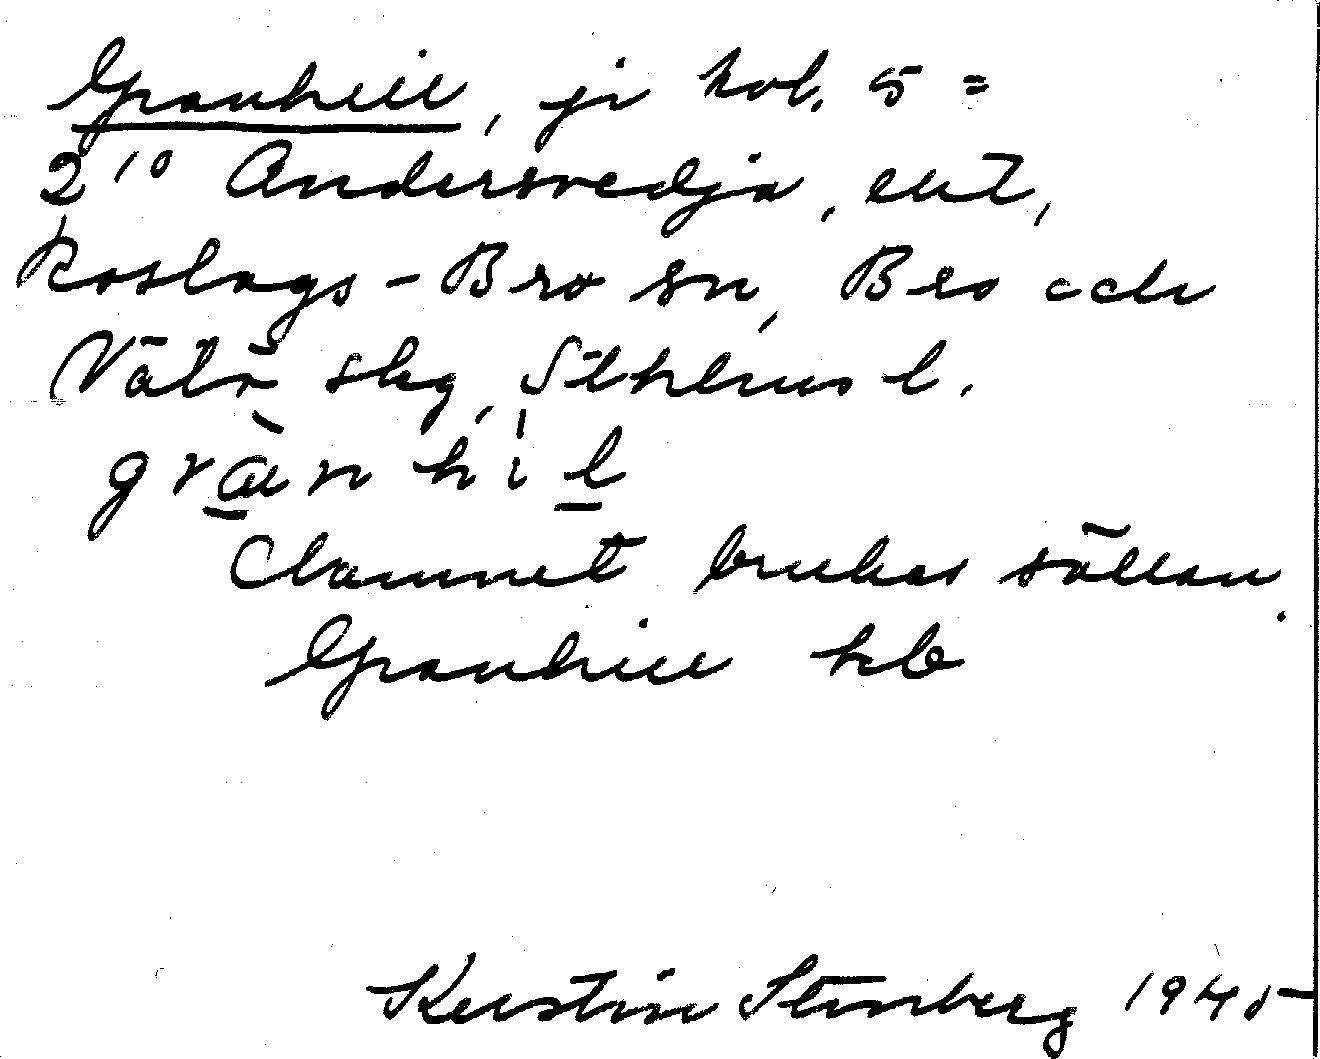 Granhill, ji kol. 5 =
2¹⁰ Andersvedja, ent,
Roslags-Bro sn, Bro och
Vätö skg, Sthlms l.
grà̱n hìḻ
Namnet brukas sällan.
Granhill kb
Kerstin Stenberg 1945